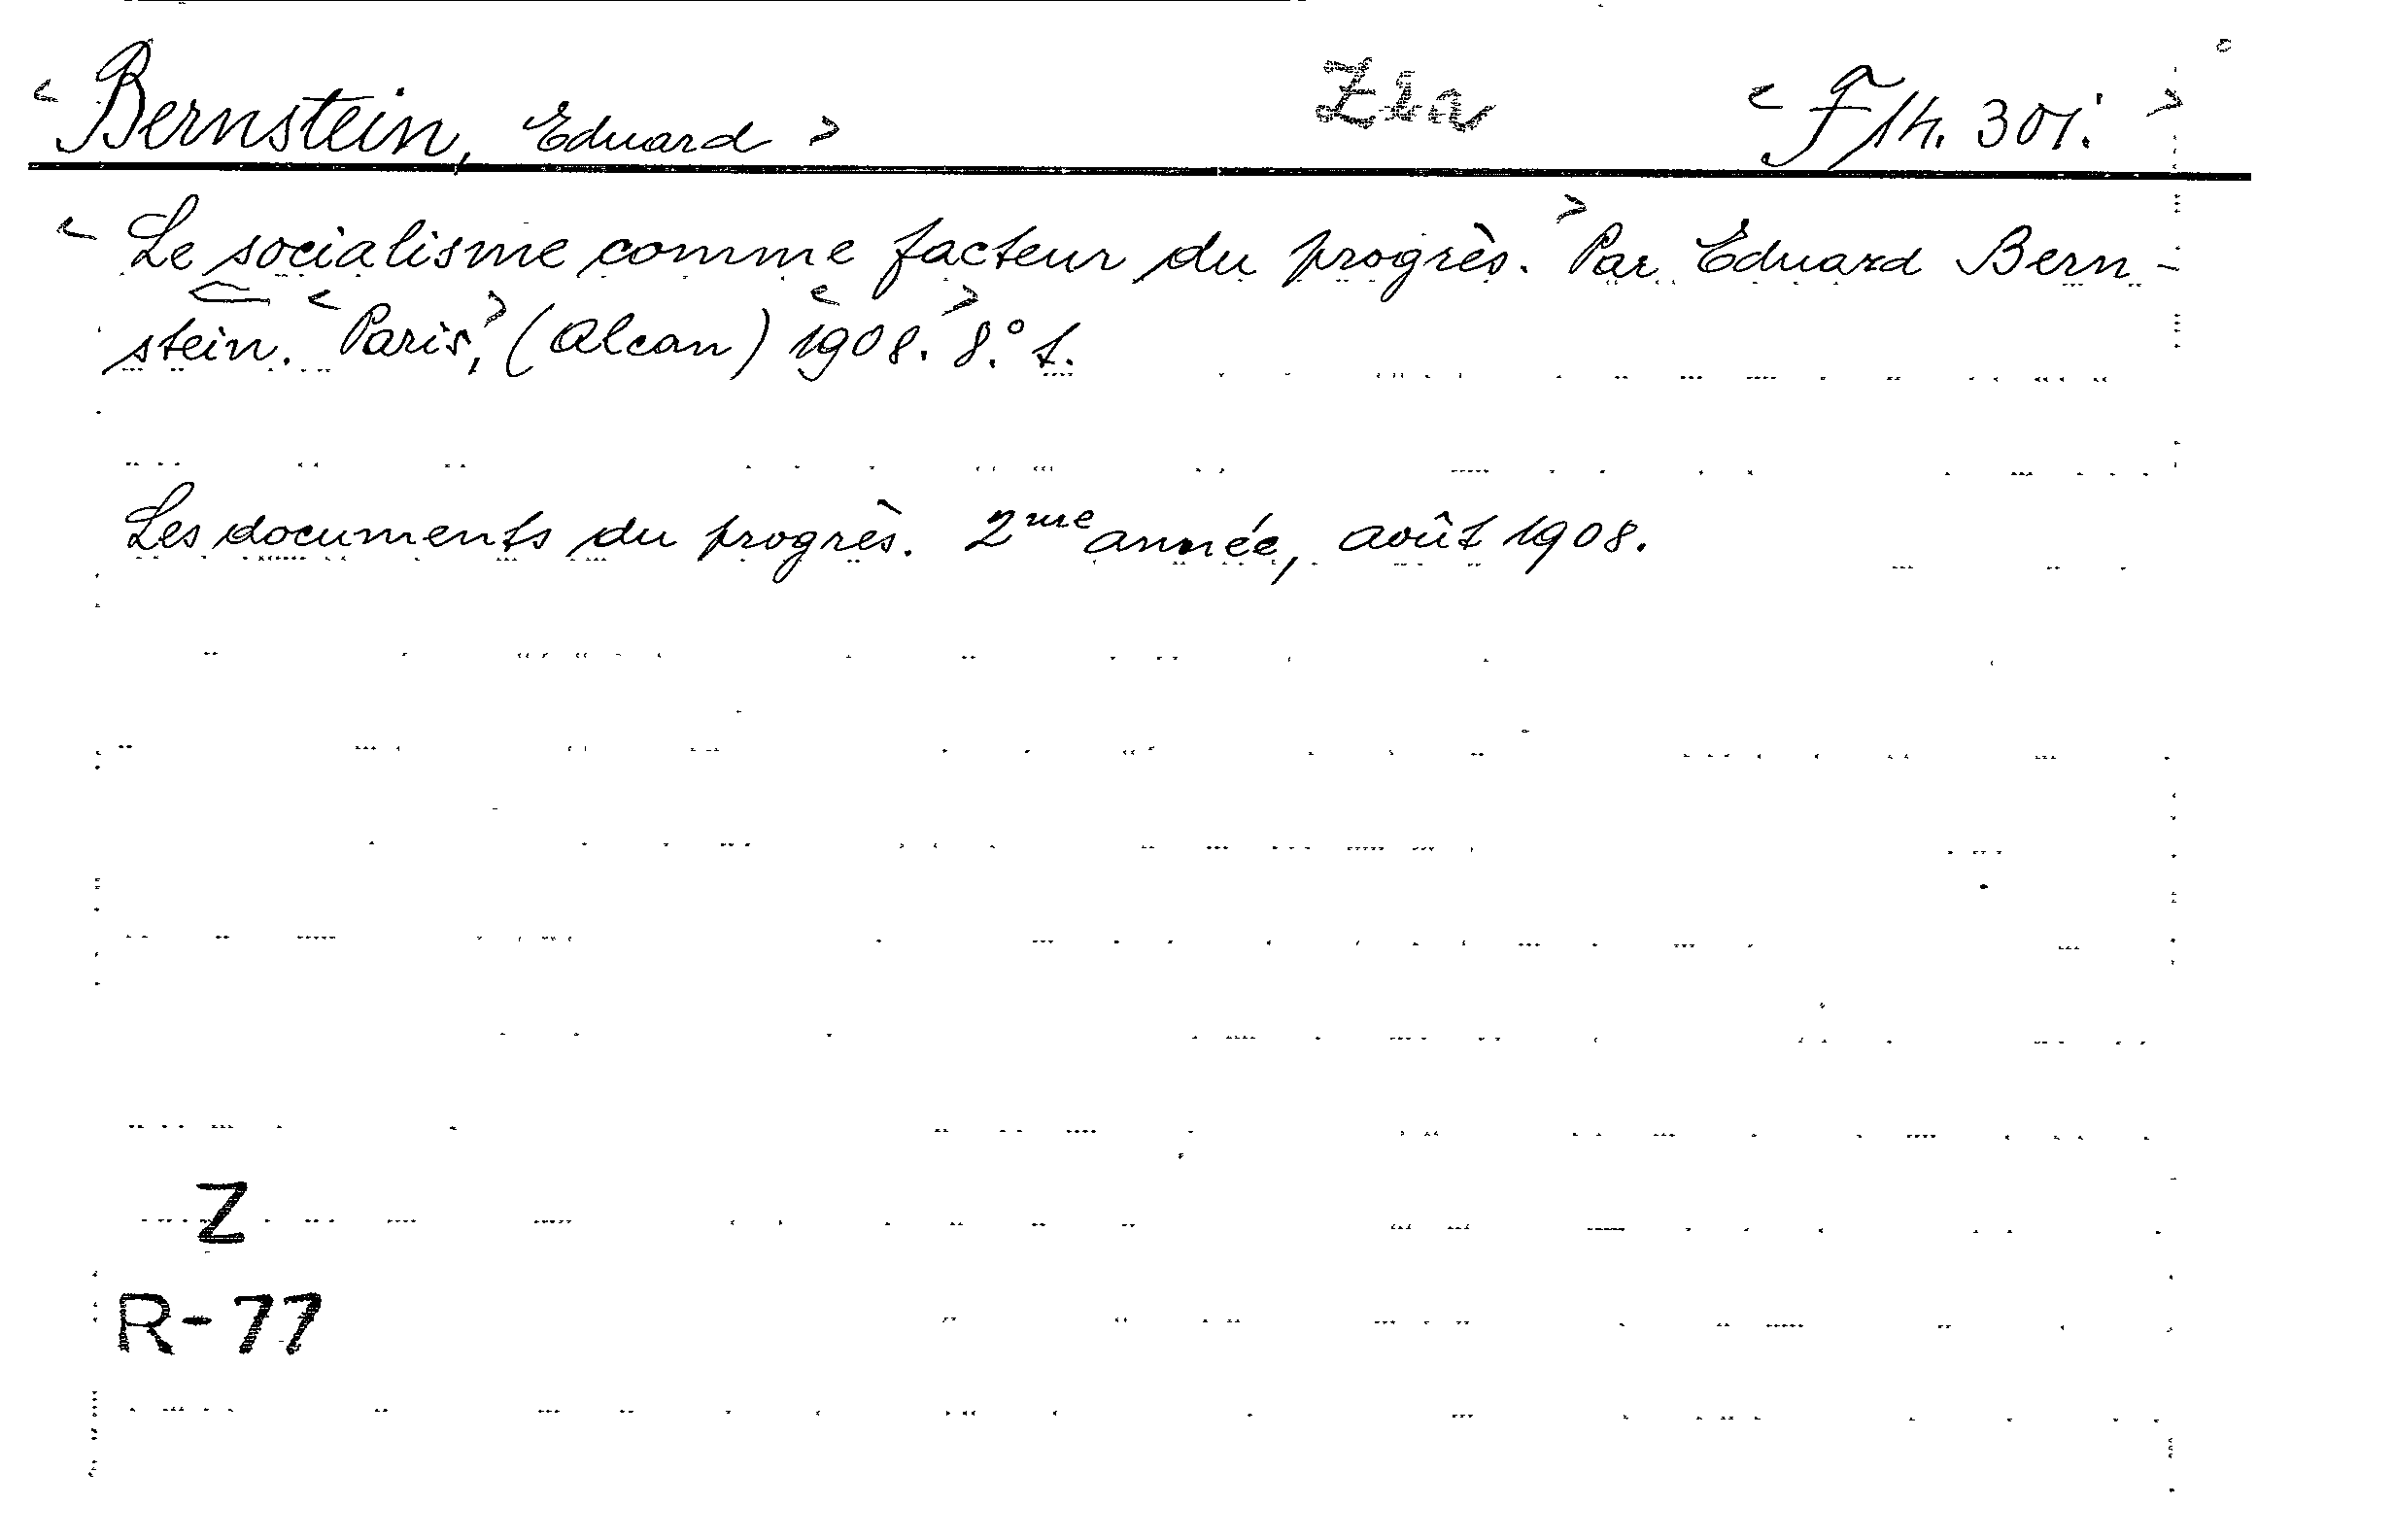 < Bernstein, Eduard > < F 14. 301. >
< Le socialisme comme facteur du progrès. > Par Eduard Bern-
stein. < Paris, > (Alcan) < 1908. > 8.° 1.
Les documents du progrès. 2me année, août 1908.
Z
R-77